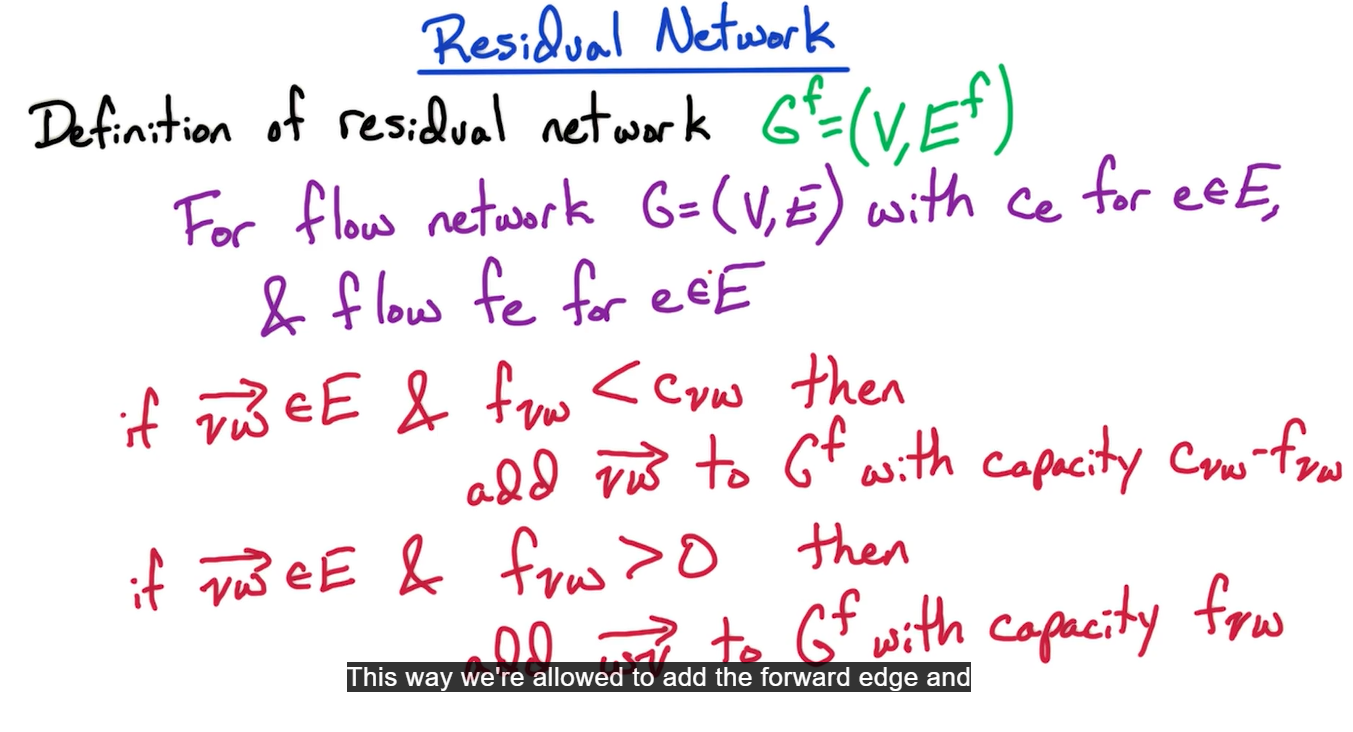 Residual Network
Definition of residual network G^f=(V,E^f)
For flow network G=(V,E) with ce for e∈E,
& flow fe for e∈E
if vw∈E & fvw < cvw then
add vw to G^f with capacity cvw-fvw
if vw∈E & fvw >0 then
add wv to G^f with capacity fvw
This way we're allowed to add the forward edge and